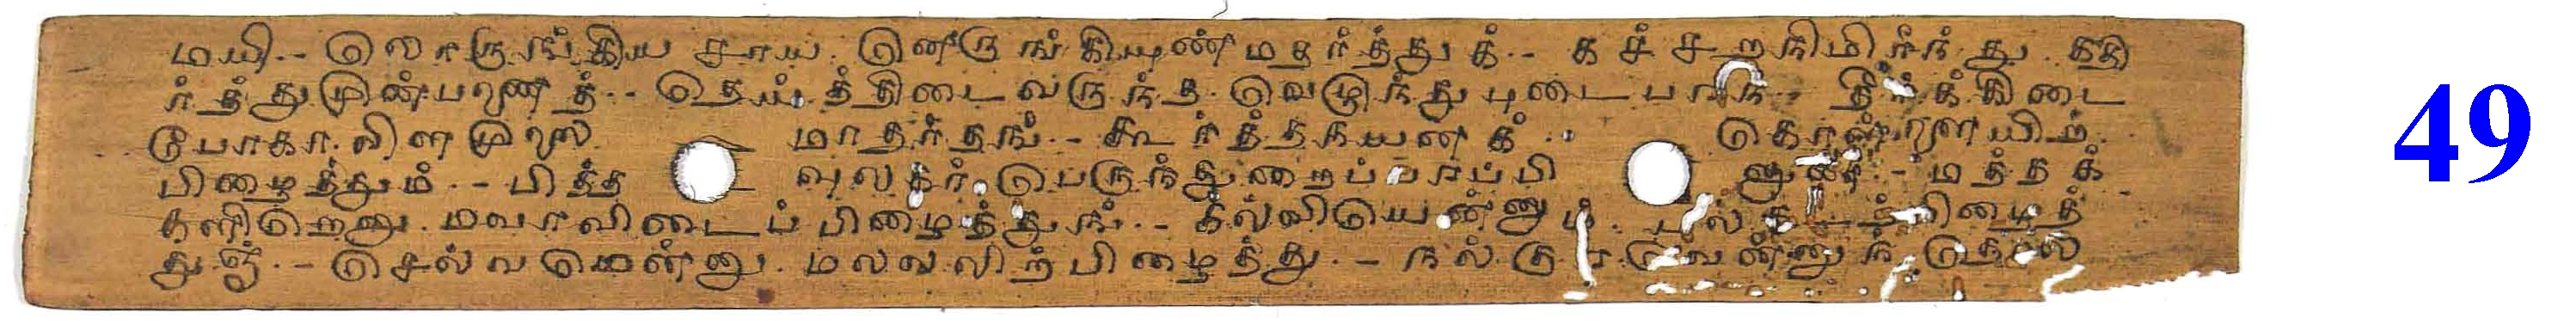 மயி - லொருங்கிய சாய னெருங்கியுண் மதர்த்துக் - கச்சறநிமிர்ந்து கதி
ர்த்து முன்பணைத் - தெய்த்திடைவருந்த வெழுந்து புடைபரந் தீர்க்கிடை
போகா விளமுலை மாதர்தங் - கூர்த்தநயனக் கொள்ளையிற்
பிழைத்தும் - பித்த வுலகர் பெருந்துறைப்பரப்பி னுள் - மத்தக்
களிறெனு மவாவிடைப் பிழைத்துங் - கல்வியென்னும் பல்கடற் பிழைத்
துஞ் - செல்வமென்னு மல்லலிற் பிழைத்து - நல்குரவென்னுந் தொல்
49